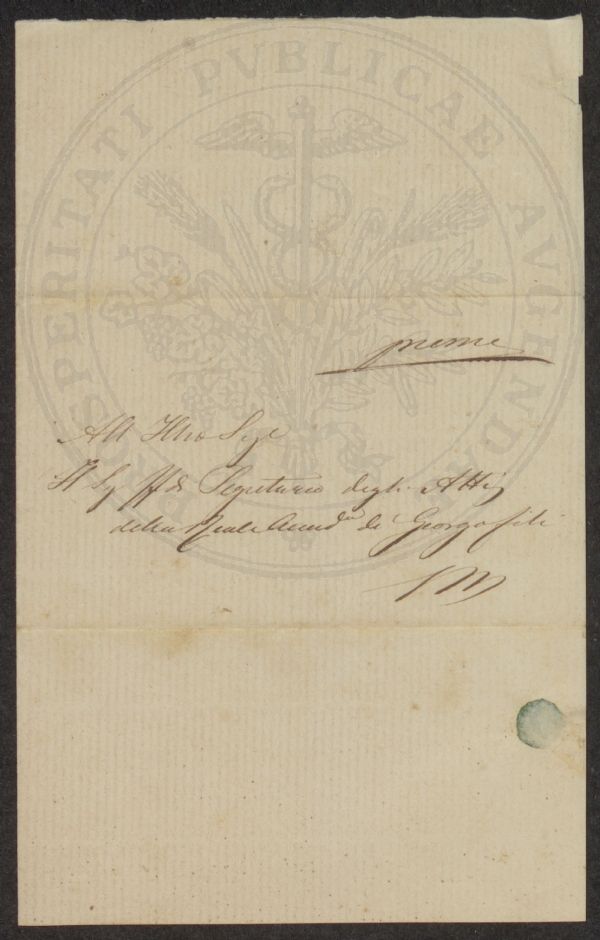 PROSPERITATI PVBLICAE AVGENDAE
preme
All Illro Sigre
Il Sigr ff di Segretario degli Atti
della Reale Accad.a di Georgofili
SM